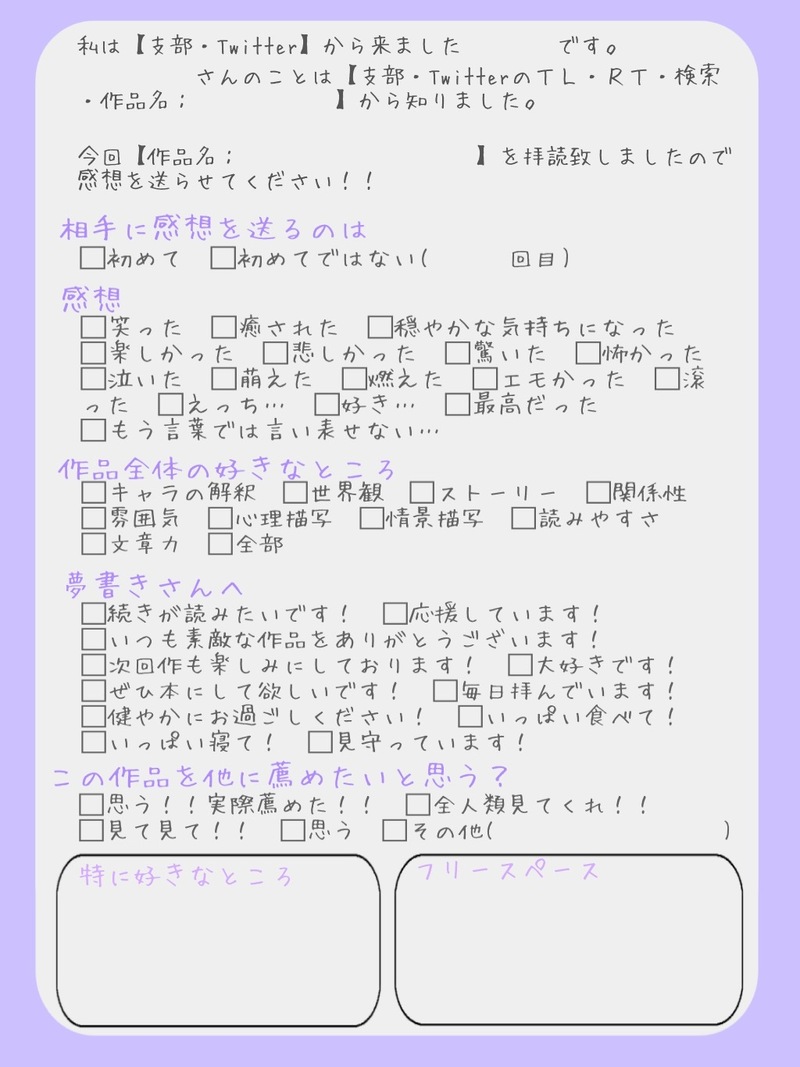 私は【支部・Twitter】から来ました　　　　です。
さんのことは【支部・TwitterのＴＬ・ＲＴ・検索
・作品名；　　　　　　】から知りました。
今回【作品名；　　　　　　　　　　】を拝読致しましたので
感想を送らせてください！！
相手に感想を送るのは
□初めて　□初めてではない(　　　回目)
感想
□笑った　□癒された　□穏やかな気持ちになった
□楽しかった　□悲しかった　□驚いた　□怖かった
□泣いた　□萌えた　□燃えた　□エモかった　□滾
った　□えっち…　□好き…　□最高だった
□もう言葉では言い表せない…
作品全体の好きなところ
□キャラの解釈　□世界観　□ストーリー　□関係性
□雰囲気　□心理描写　□情景描写　□読みやすさ
□文章力　□全部
夢書きさんへ
□続きが読みたいです！　□応援しています！
□いつも素敵な作品をありがとうございます！
□次回作も楽しみにしております！　□大好きです！
□ぜひ本にして欲しいです！　□毎日拝んでいます！
□健やかにお過ごしください！　□いっぱい食べて！
□いっぱい寝て！　□見守っています！
この作品を他に薦めたいと思う？
□思う！！実際薦めた！！　□全人類見てくれ！！
□見て見て！！　□思う　□その他(　　　　　　　　　　)
特に好きなところ
フリースペース